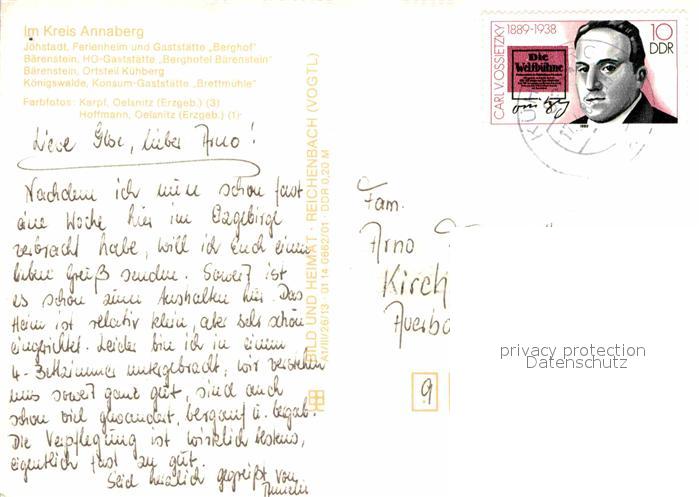 Im Kreis Annaberg
Jöhstadt, Ferienheim und Gaststätte „Berghof"
Bärenstein, HO-Gaststätte „Berghotel Bärenstein"
Bärenstein, Ortsteil Kühberg
Königswalde, Konsum-Gaststätte „Brettmühle"
Farbfotos: Karpf, Oelsnitz (Erzgeb.) (3)
Hoffmann, Oelsnitz (Erzgeb.) (1)
Lieve lieber Arno!
Nachdem ich nun schon fast
eine Woche hier im Erzgebirge
verbracht habe, will ich Euch einen
lieben Gruß senden. Soweit ist
es schon zum Aushalten hier. Das
Heim ist relativ klein, aber sehr schön
eingerichtet. Leider bin ich in einem
4-Bettzimmer untergebracht, wir verstehen
uns soweit ganz gut, sind auch
schon viel gewandert, bergauf u. bergab.
Die Verpflegung ist wirklich bestens,
eigentlich fast zu gut.
Seid herzlich gegrüßt von
BILD UND HEIMAT · REICHENBACH (VOGTL)
A1/III/26/13 01 14 0662/01 DDR 0,20 M
CARL V. OSSIETZKY 1889-1938
Die
Weltbühne
10
DDR
Fam.
Arno
Kirch
Auerba
9
privacy protection
Datenschutz